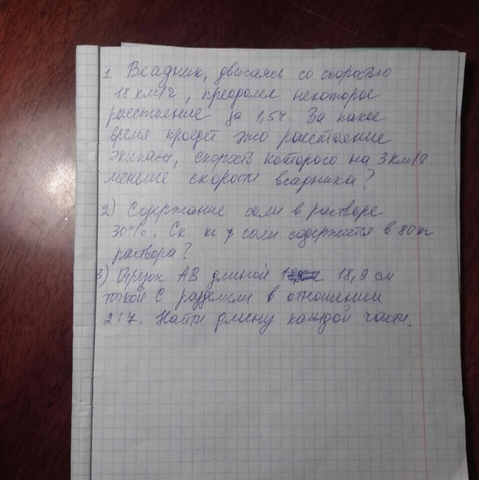 1. Всадник, двигаясь со скоростью
18 км/ч, преодолел некоторое
расстояние за 1,5ч. За какое
время проедет это расстояние
экипаж, скорость которого на 3км/ч.
меньше скорости всадника?
2) Содержание соли в растворе
30%. Ск. кг соли содержится в 80кг
раствора?
3) Отрезок АВ длиной 18,9 см
точкой С разделили в отношении
2:7. Найти длину каждой части.